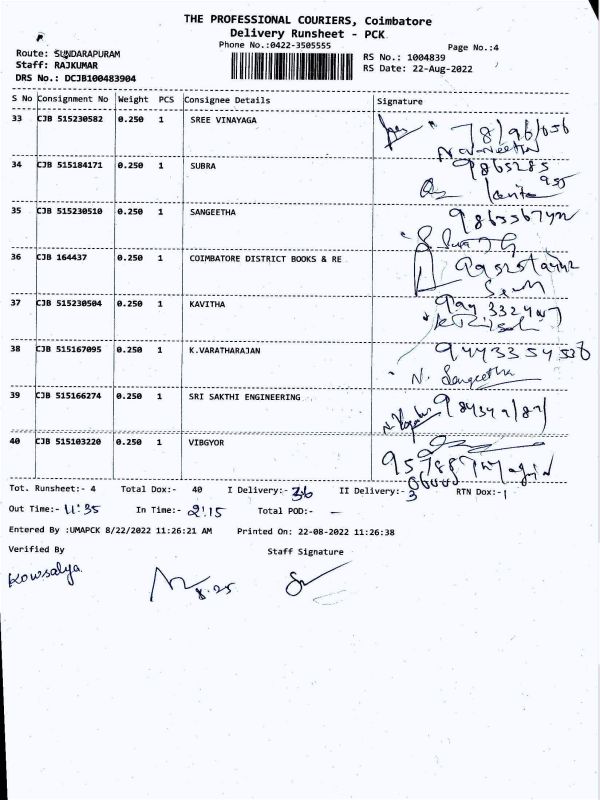 THE PROFESSIONAL COURIERS, Coimbatore
Delivery Runsheet - PCK
Phone No.:0422-3505555
Page No.:4
Route: SUNDARAPURAM
Staff: RAJKUMAR
DRS No.: DCJB100483904
RS No.: 1004839
RS Date: 22-Aug-2022
S No Consignment No Weight PCS Consignee Details Signature
33 CJB 515230582 0.250 1 SREE VINAYAGA
34 CJB 515184171 0.250 1 SUBRA
35 CJB 515230510 0.250 1 SANGEETHA
36 CJB 164437 0.250 1 COIMBATORE DISTRICT BOOKS & RE
37 CJB 515230504 0.250 1 KAVITHA
38 CJB 515167095 0.250 1 K.VARATHARAJAN
9443354538
N. Sangeetha
39 CJB 515166274 0.250 1 SRI SAKTHI ENGINEERING
40 CJB 515103220 0.250 1 VIBGYOR
Tot. Runsheet:- 4 Total Dox:- 40 I Delivery:- 36 II Delivery:- 3 RTN Dox:- 1
Out Time:- 11:35 In Time:- 2:15 Total POD:- -
Entered By :UMAPCK 8/22/2022 11:26:21 AM Printed On: 22-08-2022 11:26:38
Verified By Staff Signature
Kowsalya